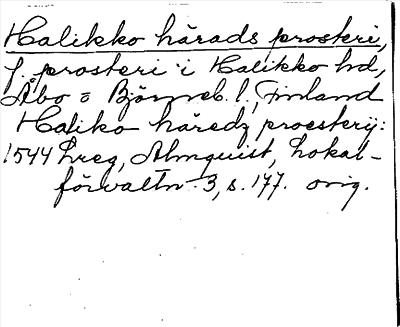 Halikko härads prosteri,
f. prosteri i Halikko hd,
Åbo o Björneb. l., Finland
Haliko häredz proesterij:
1544 Lreg, Almquist, Lokal-
förvaltn. 3, s. 177. orig.